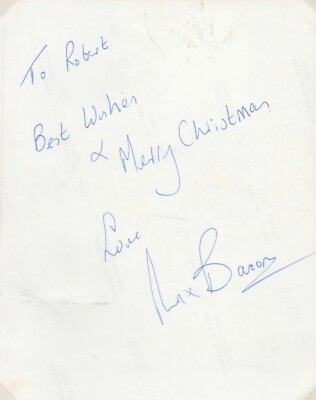 To Robert
Best Wishes
& Merry Christmas
Love
Max Bacon